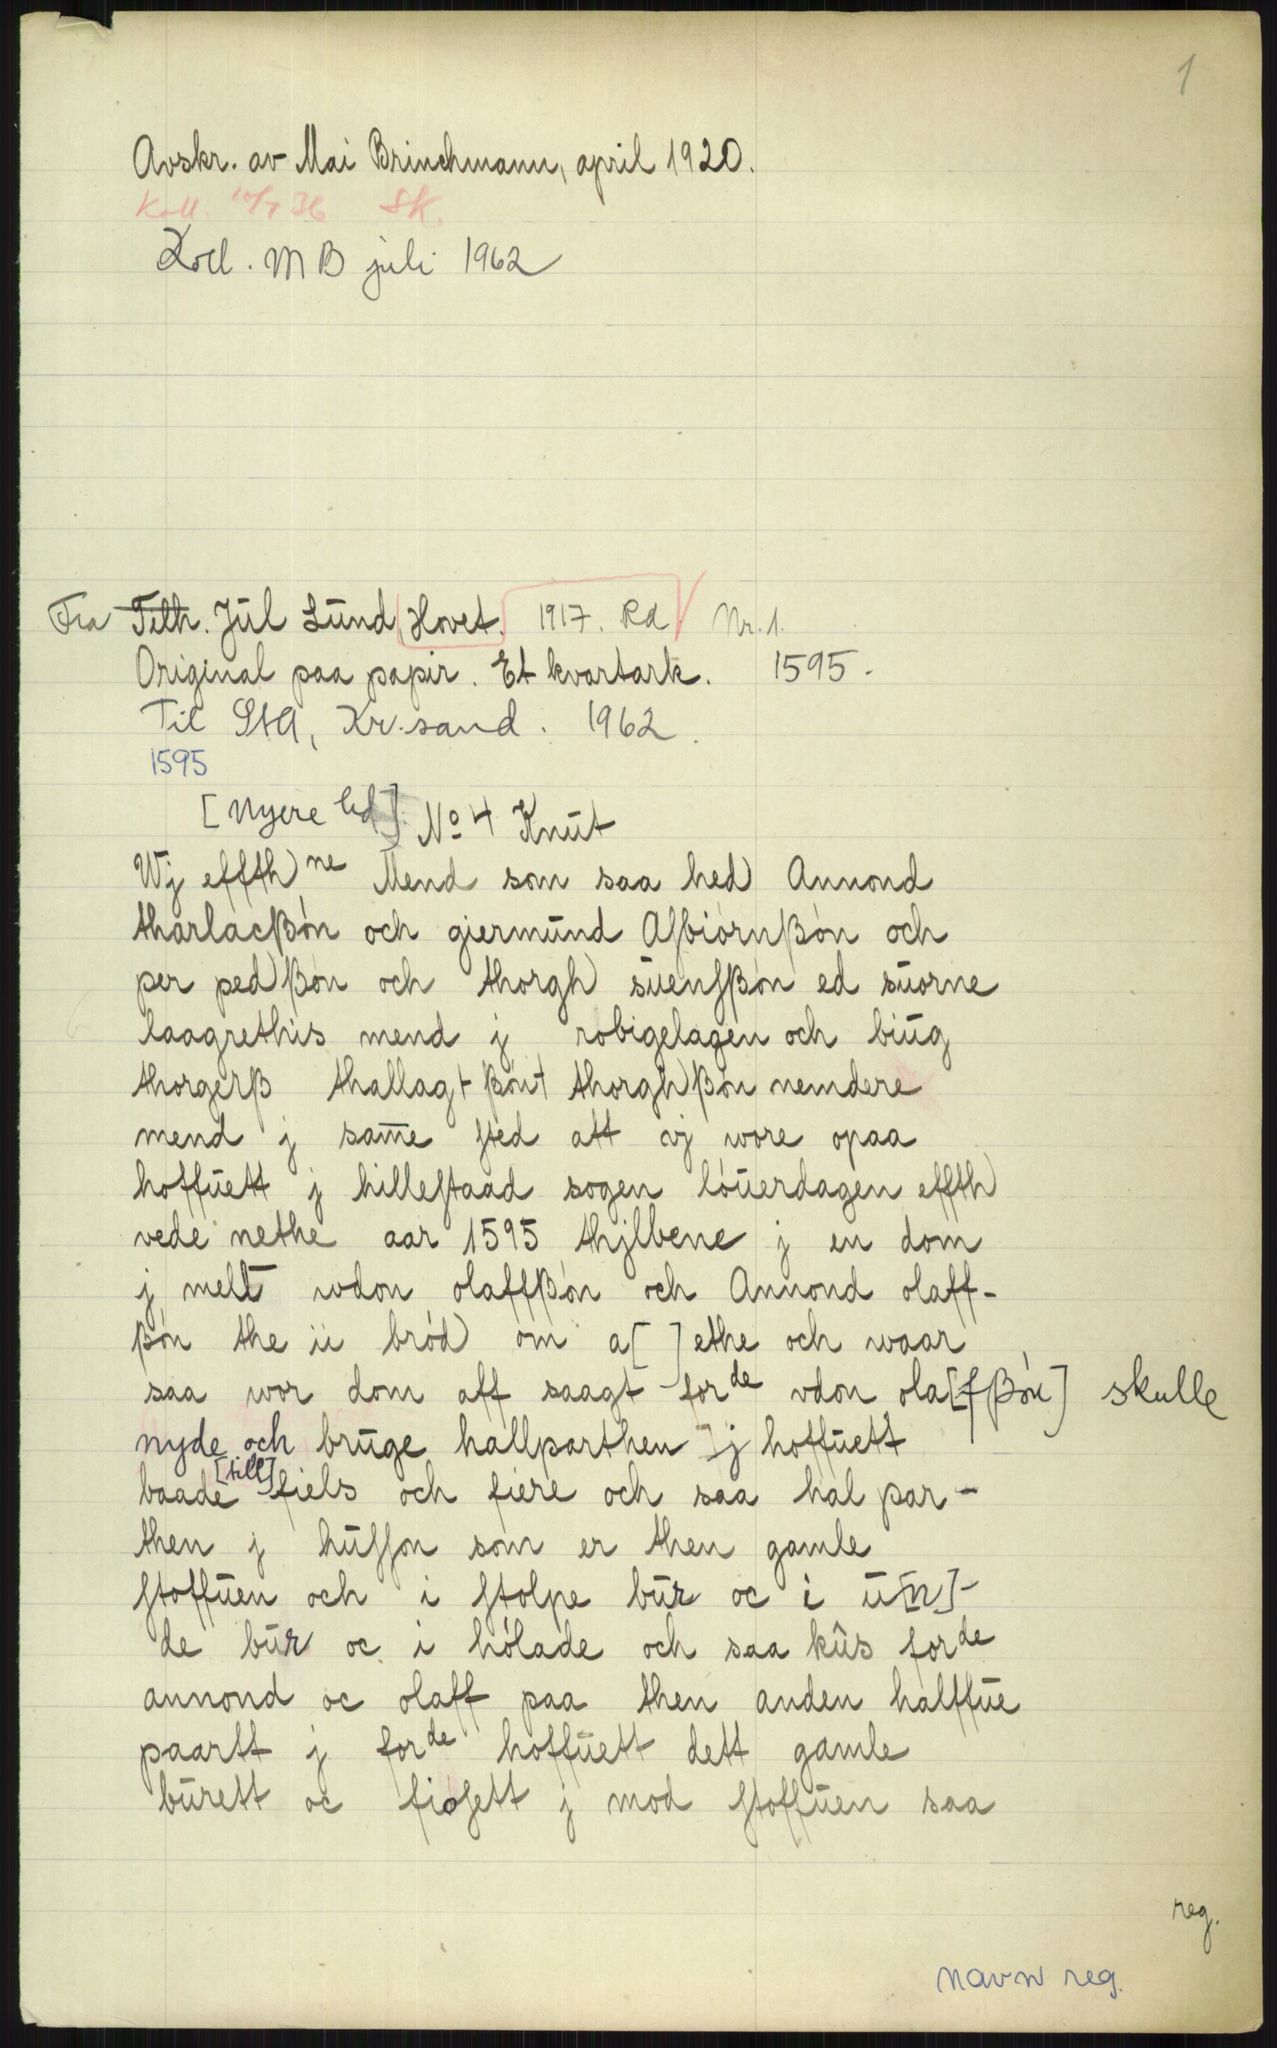 1
Avskr. av Mai Brinchmann, april 1920.
Koll. 10/7 36 SK.
Koll. MB juli 1962
Fra Tilh. Jūl Lūnd Hovet. 1917. Rd Nr. 1.
Original paa papir. Et kvartark. 1595.
Til StA, Kr.sand. 1962.
1595
[Nyere hd] No 4 Knūt
Wj effth) ne Mend som saa hed) Annond
tharlacßón och giermūnd Asbiórnßón och
per ped)ßón och thorgh) sūenſßón ed sūorne
laagrethis mend j robigelagen och biūg
thorgerß thallagt ßónt thorgh)ßón nemdere
mend j sam̄e ſted att vj wore opaa
hoffūett j hilleſtaad sogen lóūerdagen effth)
vede nethe aar 1595 thjlbene j en dom
j mellt wdon olaffßón och Annond olaff-
ßón the ii bród) om a[ ]ethe och waar
saa wor dom aff saagt forde vdon ola[fßón] skulle
nyde och brūge hallparthen j hoffūett
baade [till] fiels och fiere och saa hal par-
then j hūſſon som er then gamle
ſtoffūen och i ſtolpe būr oc i ū[n]-
de būr oc i hólade och saa kūs forde
annond oc olaff paa then anden halffūe
paartt j forde hoffūett dett gamle
būrett oc fioſett j mod ſtoffūen saa
reg.
navn reg.